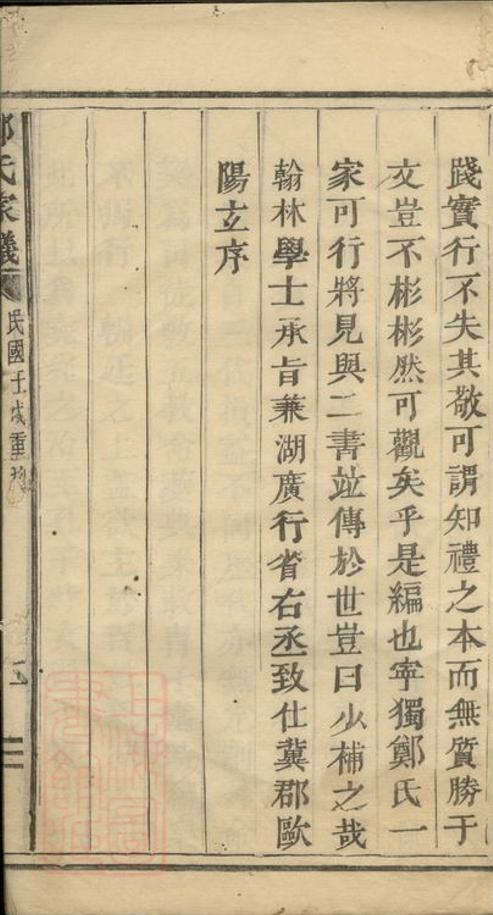 踐實行不失其敬可謂知禮之本而無質勝于
文豈不彬彬然可觀矣乎是編也寧獨鄭氏一
家可行將見與二書竝傳於世豈曰少補之哉
翰林學士承旨兼湖廣行省右丞致仕冀郡歐
陽玄序
鄭氏家儀
民國壬戌重